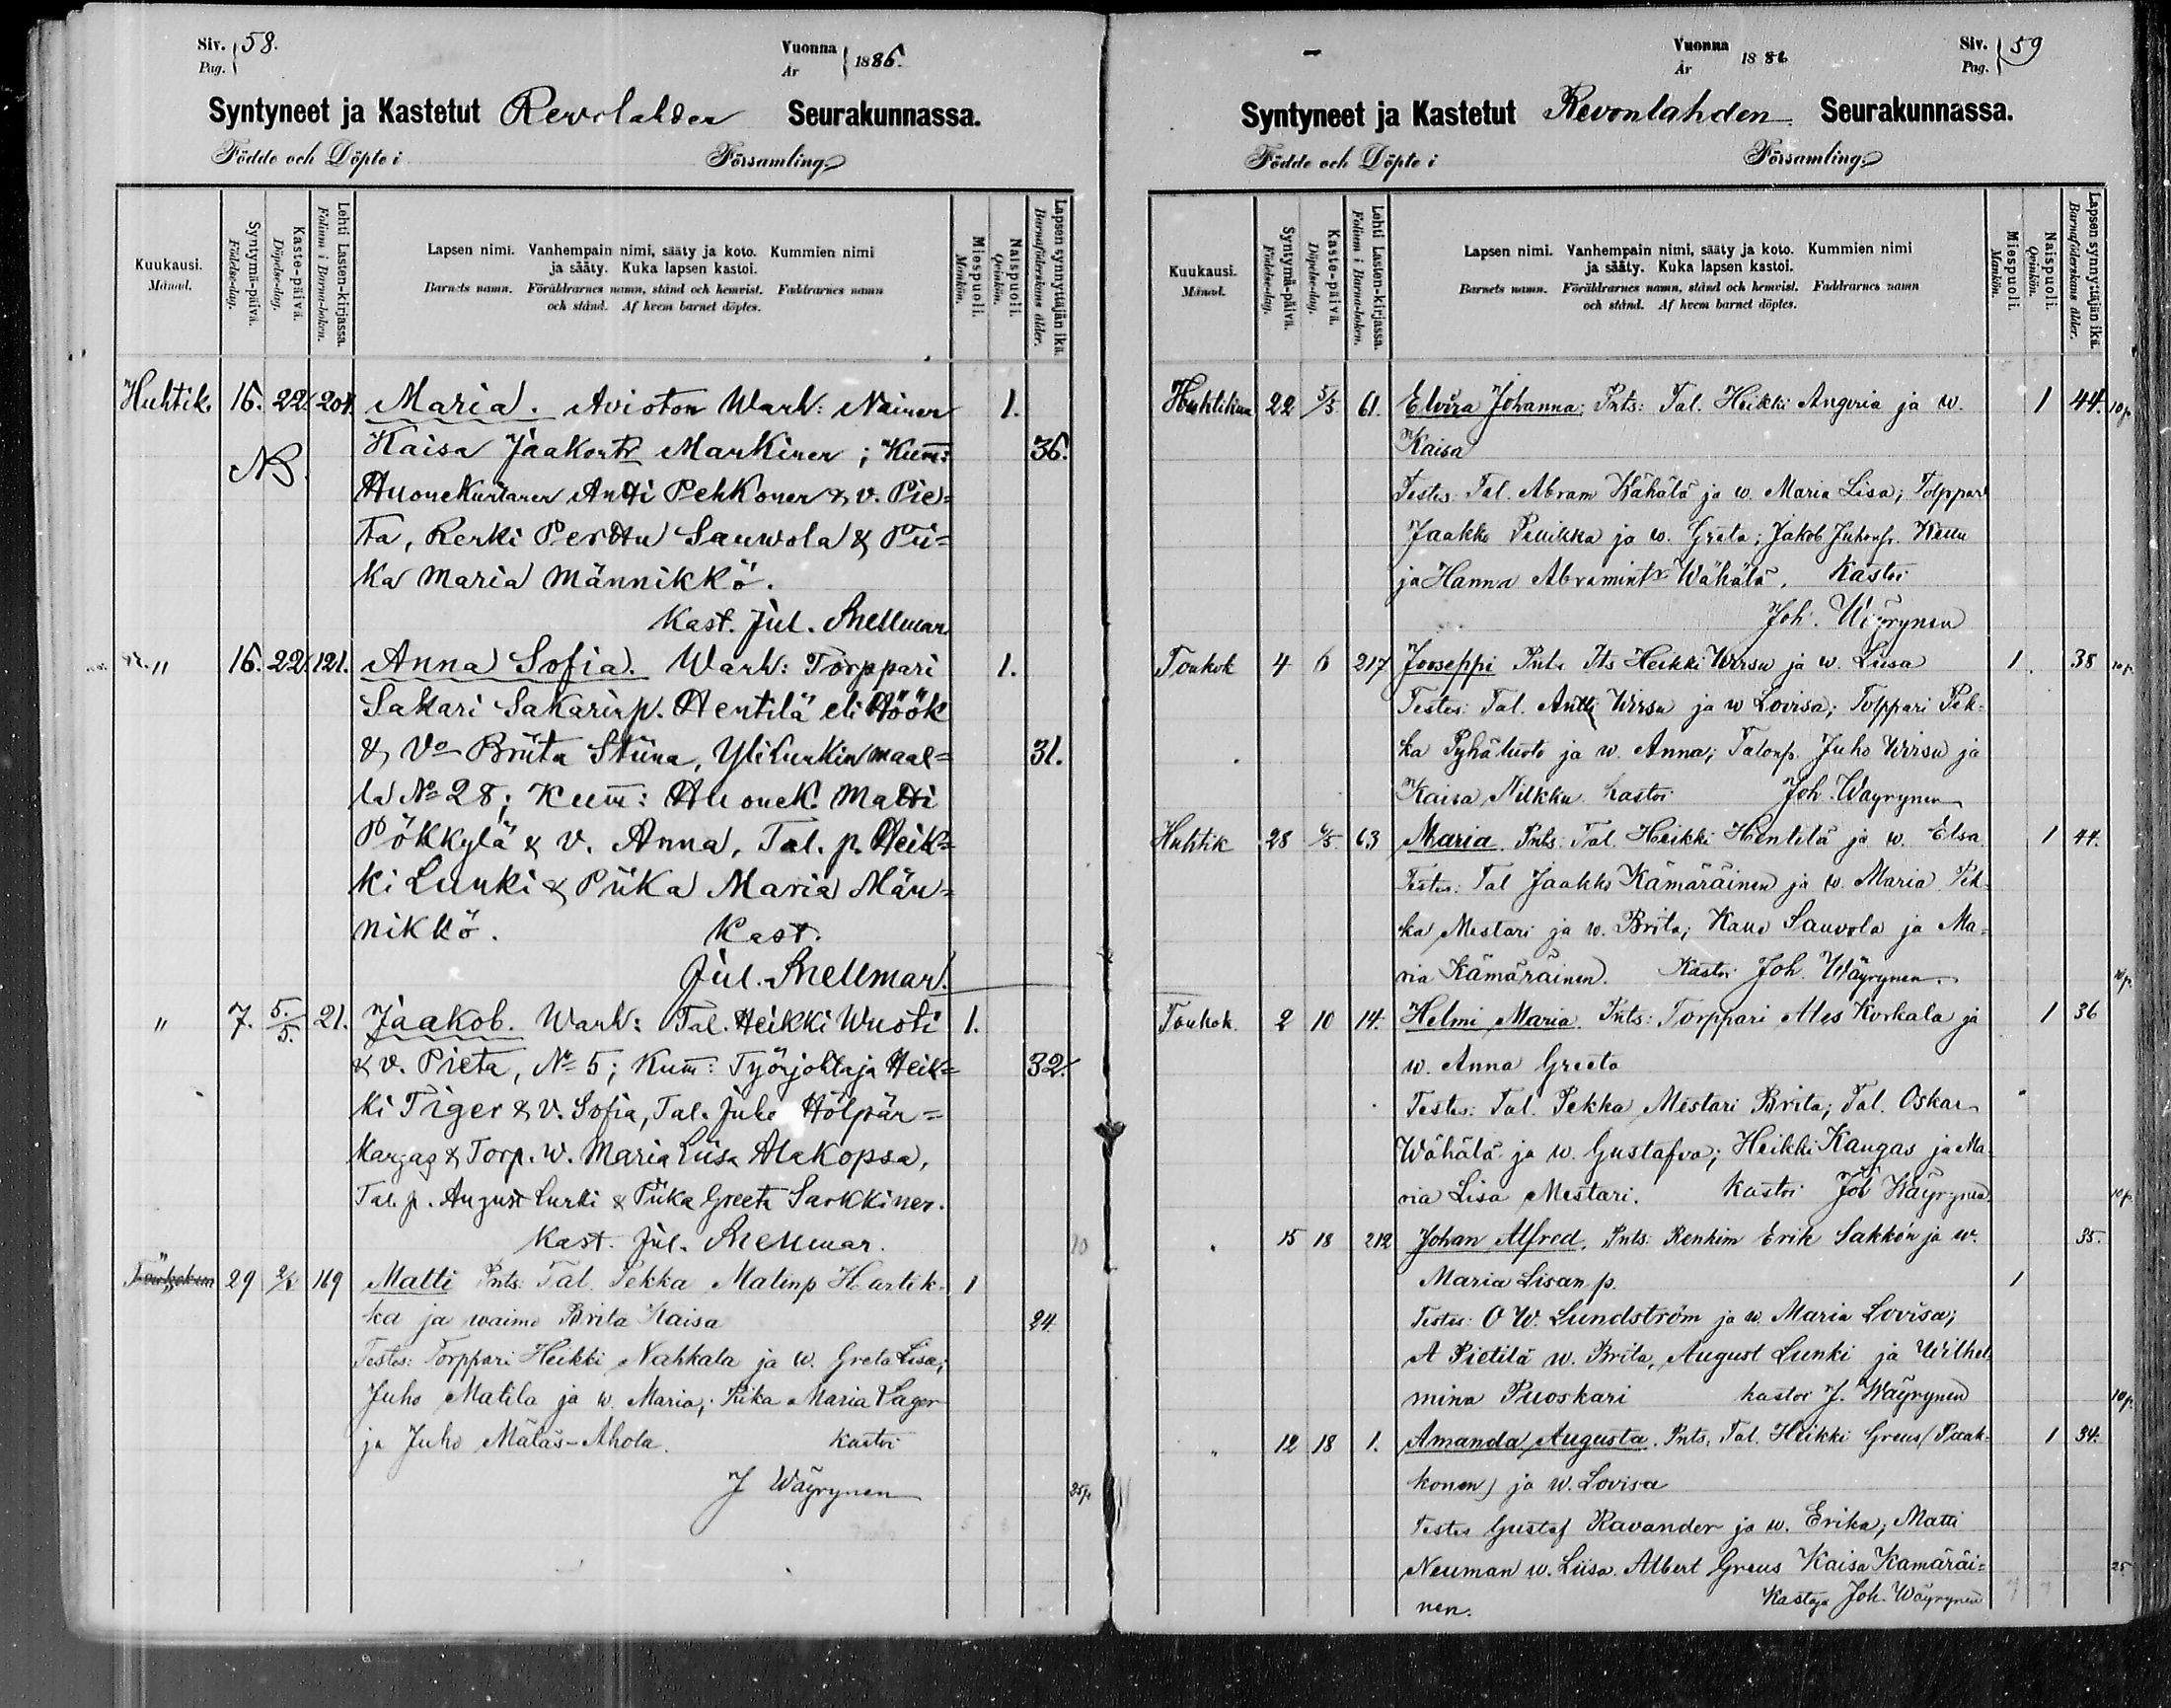 Siv. 58.
Pag.
Vuonna 1886.
År
Syntyneet ja Kastetut Revolahden Seurakunnassa.
Födde och Döpte i Församling
Kuukausi.
Månad.
Syntymä-päivä.
Födelse-dag.
Kaste-päivä.
Döpelse-dag.
Lehti Lasten-kirjassa.
Folium i Barna-boken.
Lapsen nimi. Vanhempain nimi, sääty ja koto. Kummien nimi
ja sääty. Kuka lapsen kastoi.
Barnets namn. Föräldrarnes namn, stånd och hemvist. Faddrarnes namn
och stånd. Af hvem barnet döptes.
Miespuoli.
Mankön.
Naispuoli.
Qvinkön.
Lapsen synnyttäjän ikä.
Barnaföderskans ålder.
Huhtik. 16. 22. 204. Maria. Avioton Wanh: Nainen 1.
NB. Kaisa Jaakontr Mankinen; Kum: 36.
Huonekuntanen Antti Pehkonen & v. Pie=
ta, Renki Perttu Sauwola & Pii=
ka Maria Männikkö.
Kast. Jul. Snellman.
" 16. 22. 121. Anna Sofia. Wanh: Torppari 1.
Sakari Sakarinp. Hentilä eli Höök
& Vo Briita Stiina, Ylilunkin maal= 31.
la No 28; Kum: Huonek. Matti
Pökkylä & v. Anna, Tal. p. Heik=
ki Lunki & Piika Maria Män=
nikkö. Kast.
Jul. Snellman.
" 7. 5./5. 21. Jaakob. Wanh: Tal. Heikki Wuoti 1.
& v. Pieta, No 5; Kum: Työnjohtaja Heik= 32.
ki Tiger & v. Sofia, Tal. Juho Hölpän=
kangas & Torp. w. Maria Liisa Alakopsa,
Tal. p. August Lunki & Piika Greeta Sarkkinen.
Kast. Jul. Snellman.
29 2/5 169 Matti Pnts: Tal. Pekka Matinp Hartik- 1
ka ja waimo Brita Kaisa 24.
Testes: Torppari Heikki Nahkala ja w. Greta Lisa;
Juho Matila ja w. Maria; Piika Maria Lager
ja Juho Mälas-Ahola. kastoi
J Wäyrynen 25p.
Vuonna 1886
År
Siv. 59
Pag.
Syntyneet ja Kastetut Revonlahden Seurakunnassa.
Födde och Döpte i Församling
Kuukausi.
Månad.
Syntymä-päivä.
Födelse-dag.
Kaste-päivä.
Döpelse-dag.
Lehti Lasten-kirjassa.
Folium i Barna-boken.
Lapsen nimi. Vanhempain nimi, sääty ja koto. Kummien nimi
ja sääty. Kuka lapsen kastoi.
Barnets namn. Föräldrarnes namn, stånd och hemvist. Faddrarnes namn
och stånd. Af hvem barnet döptes.
Miespuoli.
Mankön.
Naispuoli.
Qvinkön.
Lapsen synnyttäjän ikä.
Barnaföderskans ålder.
Huhtikuu 22 5/5 61. Elvira Johanna; Pnts: Tal. Heikki Angeria ja w. 1 44. 10p.
Kaisa
Testes: Tal. Abram Wähälä ja w. Maria Lisa; Torppar
Jaakko ja w. Greta; Jakob Juhonp.
ja Hanna Abramintr Wähälä. Kastoi
Joh. Wäyrynen
Toukok 4 6 217 Jooseppi Pnts Its Heikki Wirsu ja w. Liisa 1. 38 10p.
Testes: Tal. Antti Wirsu ja w Lovisa; Torppari Pek-
ka Pyhäluoto ja w. Anna; Talonp. Juho Wirsu ja
Kaisa Nilkku. kastoi Joh. Wäyrynen
Huhtik 28 6/5 63 Maria. Pnts: Tal. Heikki Hentilä ja w. Elsa 1 44.
Testes: Tal Jaakko Kämäräinen ja w. Maria Pek-
ka Mestari ja w. Brita; Sauvola ja Ma-
ria Kämäräinen. Kastoi Joh. Wäyrynen. 10p.
Toukok. 2 10 14. Helmi Maria. Pnts: Torppari Ales Korkala ja 1 36
w. Anna Greeta
Testes: Tal. Pekka Mestari Brita; Tal. Oskar
Wähälä ja w. Gustafva; Heikki Kangas ja Ma-
ria Lisa Mestari. Kastoi Joh Wäyrynen 10p.
15 18 212 Johan Alfred. Pnts: Renkim Erik Sakkón ja w. 35.
Maria Lisan p. 1
Testes: O W. Lundström ja w. Maria Lovisa;
A Pietilä w. Brita, August Lunki ja Wilhel-
mina Puoskari kastoi J. Wäyrynen 10p.
" 12 18 1. Amanda Augusta. Pnts, Tal. Heikki Greus (Paak- 1 34.
konen) ja w. Lovisa
Testes Gustaf Ravander ja w. Erika; Matti
Neuman w. Liisa. Albert Greus Kaisa Kamäräi= 25
nen. Kastaja Joh. Wäyrynen